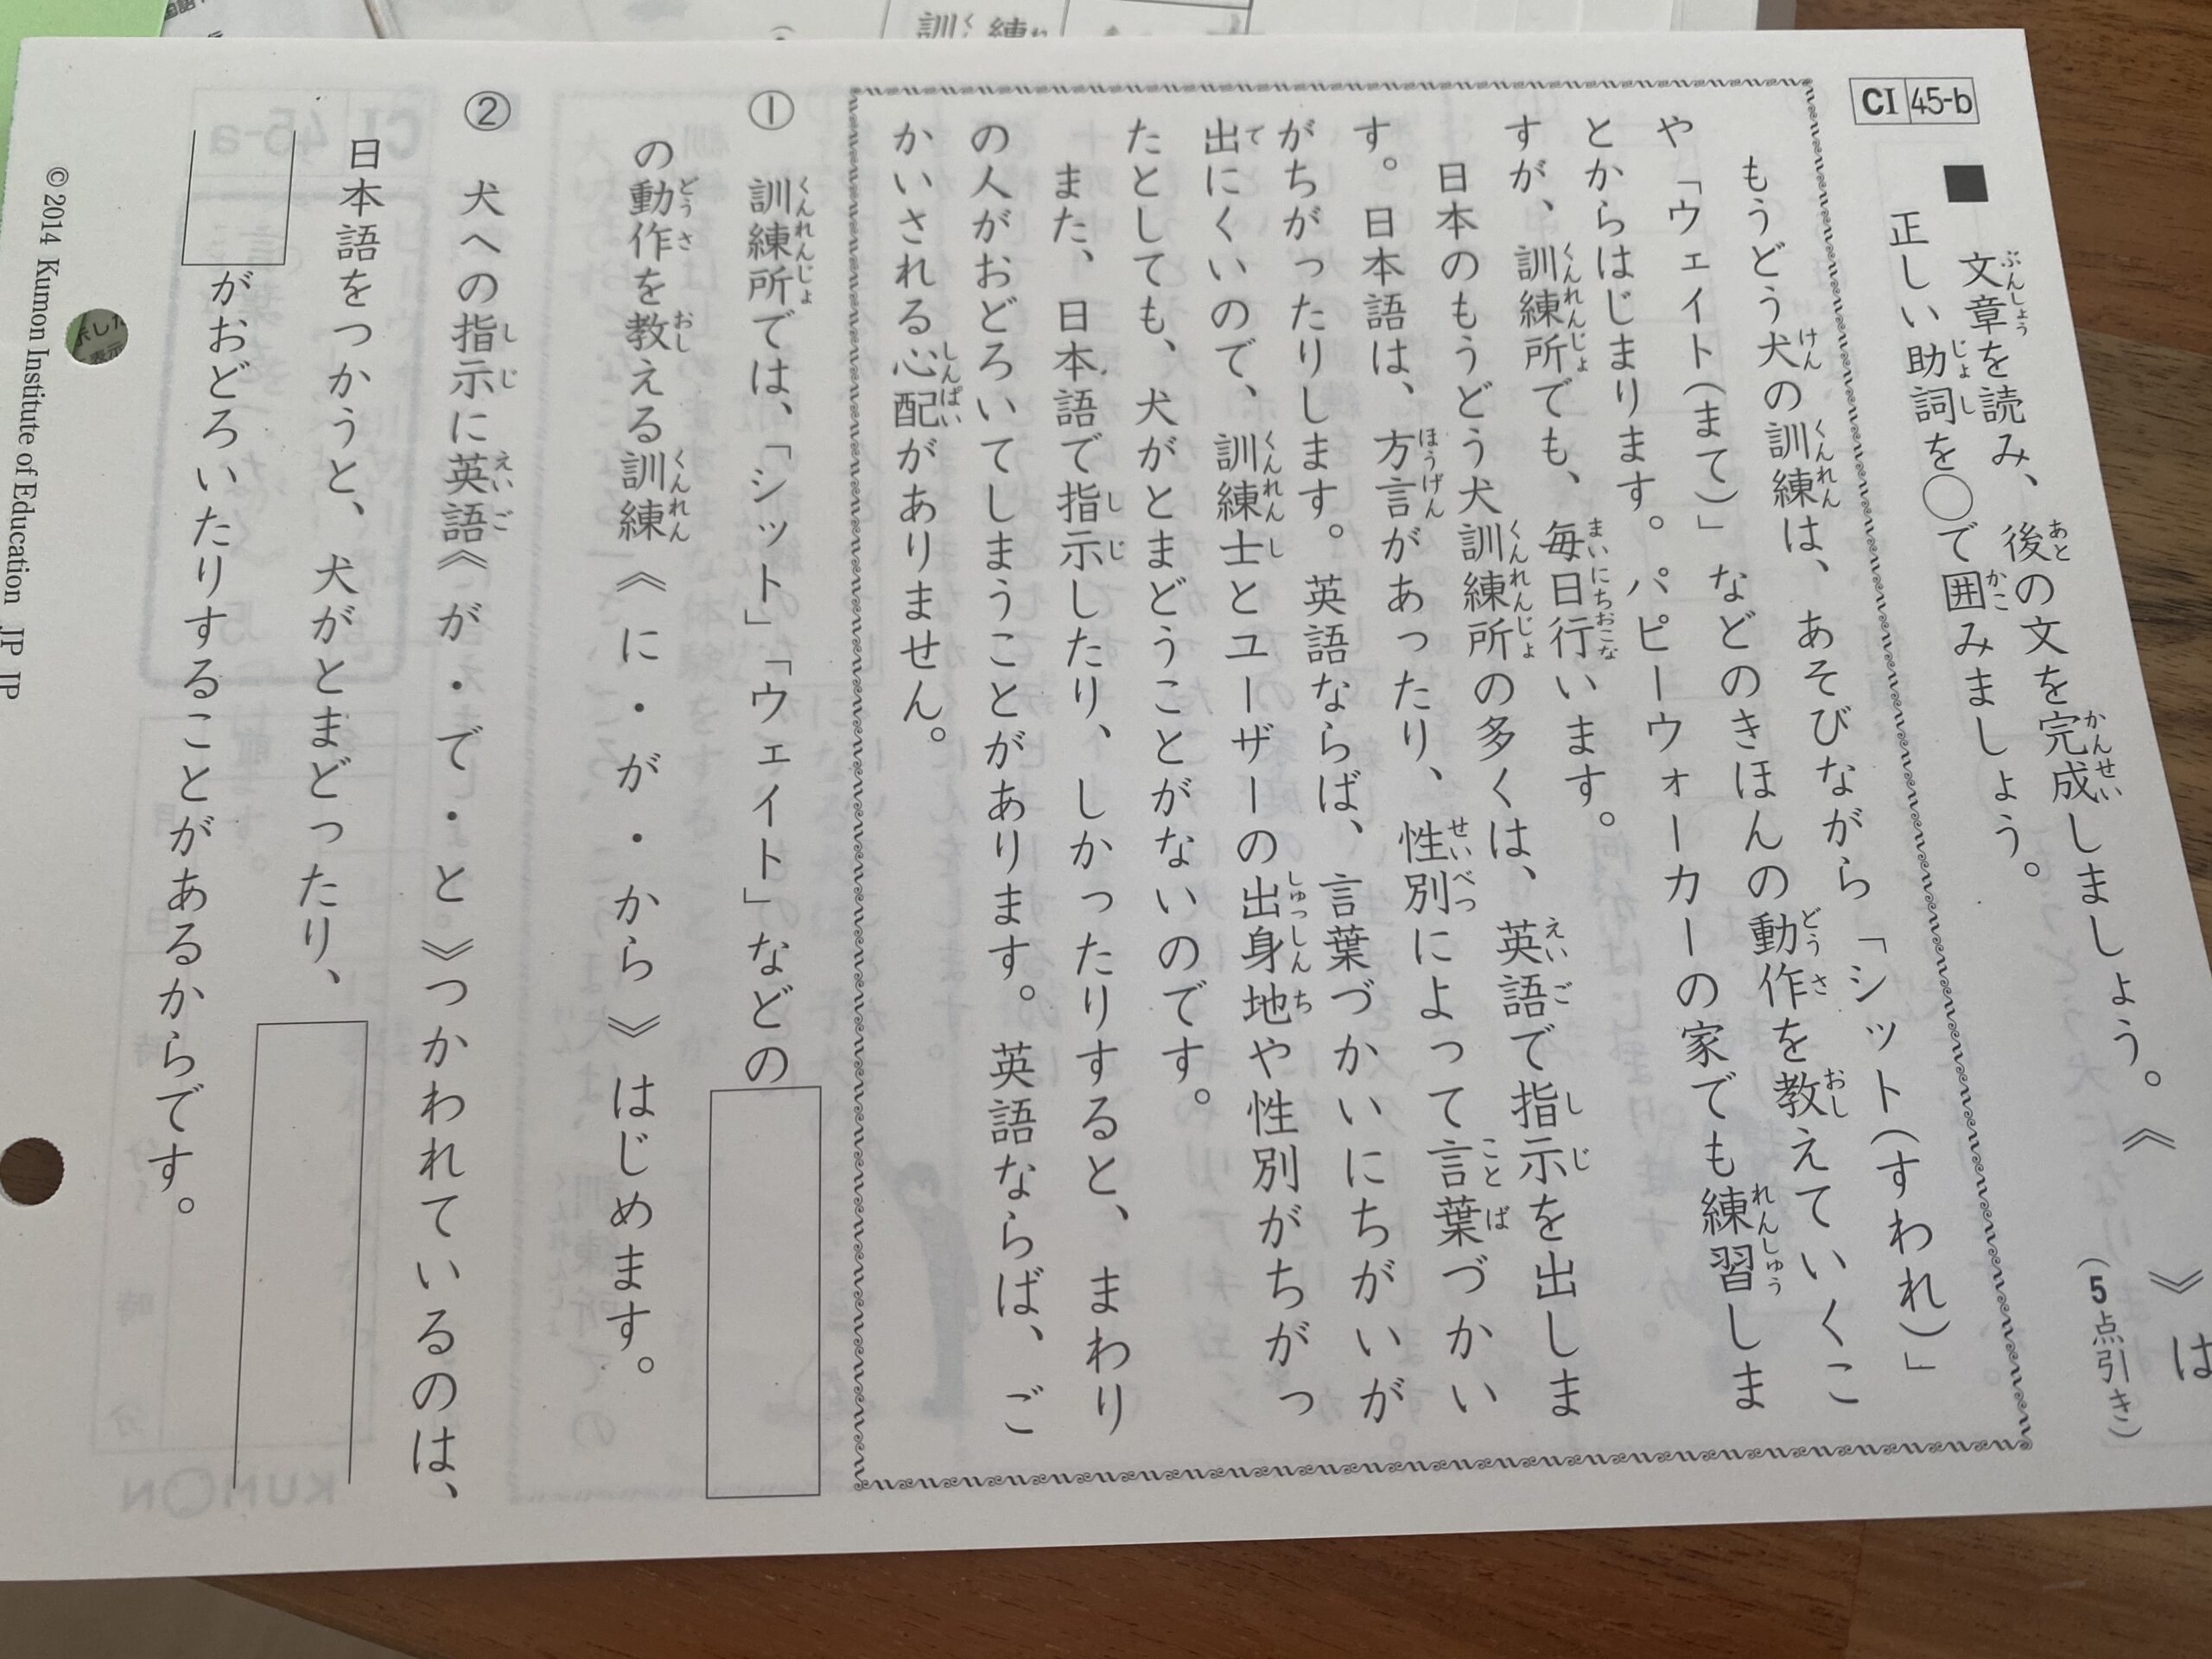 CI 45-b
■ 文章を読み、後の文を完成しましょう。《 》は
正しい助詞を○で囲みましょう。
(5点引き)
もうどう犬の訓練は、あそびながら「シット(すわれ)」
や「ウェイト(まて)」などのきほんの動作を教えていくこ
とからはじまります。パピーウォーカーの家でも練習しま
すが、訓練所でも、毎日行います。
日本のもうどう犬訓練所の多くは、英語で指示を出しま
す。日本語は、方言があったり、性別によって言葉づかい
がちがったりします。英語ならば、言葉づかいにちがいが
出にくいので、訓練士とユーザーの出身地や性別がちがっ
たとしても、犬がとまどうことがないのです。
また、日本語で指示したり、しかったりすると、まわり
の人がおどろいてしまうことがあります。英語ならば、ご
かいされる心配がありません。
① 訓練所では、「シット」「ウェイト」などの
の動作を教える訓練《に・が・から》はじめます。
② 犬への指示に英語《が・で・と》つかわれているのは、
日本語をつかうと、犬がとまどったり、
がおどろいたりすることがあるからです。
©2014 Kumon Institute of Education JP JP
訓練